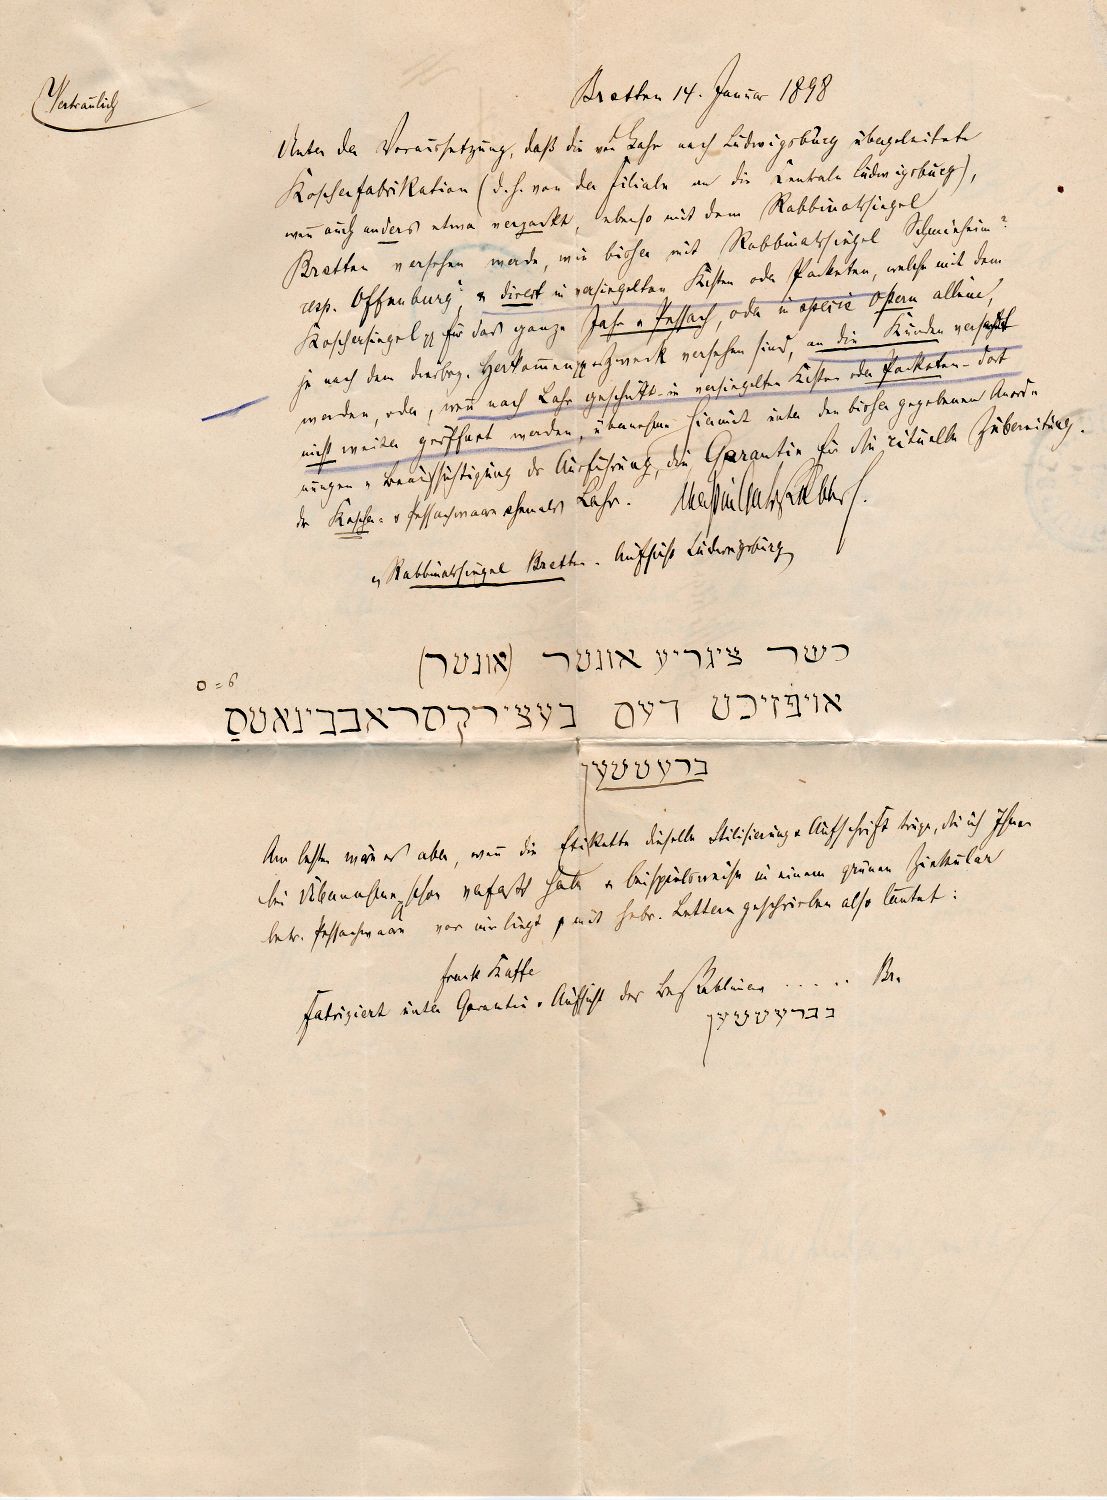 Vertraulich
Bretten 14. Januar 1898
Unter der Voraussetzung, daß die von Lahr nach Ludwigsburg übergeleitete
Koscherfabrikation (d.h. von der Filiale an die Zentrale Ludwigsburg),
wenn auch anders etwa verpackt, ebenso mit dem Rabbinatssiegel
Bretten versehen werde, wie bisher mit Rabbinatssiegel Schmieheim
resp. Offenburg, u direkt in versiegelten Kisten oder Packeten, welche mit dem
Koschersiegel für das ganze Jahr u Pessach, oder in specie Ostern allein,
je nach dem diesbez. versehen sind, an die Kunden versandt
werden, oder, wenn nach Lahr geschickt in versiegelten Kisten oder Packeten - dort
nicht weiter geöffnet werden, übernehme hiemit unter den bisher gegebenen Anord-
nungen u Beaufsichtigung der Ausführung, die Garantie für die rituelle Zubereitung
der Koscher- u Pessachwaare ehemals Lahr.
Rabbinatssiegel Bretten - Aufsicht Ludwigsburg
כשר ציגריע אונטר (אונטר)
ס = ס
אויפזיכט דעס בעצירקסראבבינאטס
ברעטטען
Am besten wäre es aber, wenn die Etikette dieselbe Stilisierung u Aufschrift trüge, die ich Ihnen
bei Übernahme schon verfaßt habe u beispielsweise in einem grünen Zirkular
betr. Pessachwaare vor mir liegt u mit hebr. Lettern geschrieben also lautet:
Franck Kaffe
Fabriziert unter Garantie u Aufsicht des Bez. Rabbiners . . . . . Br.
בברעטטען